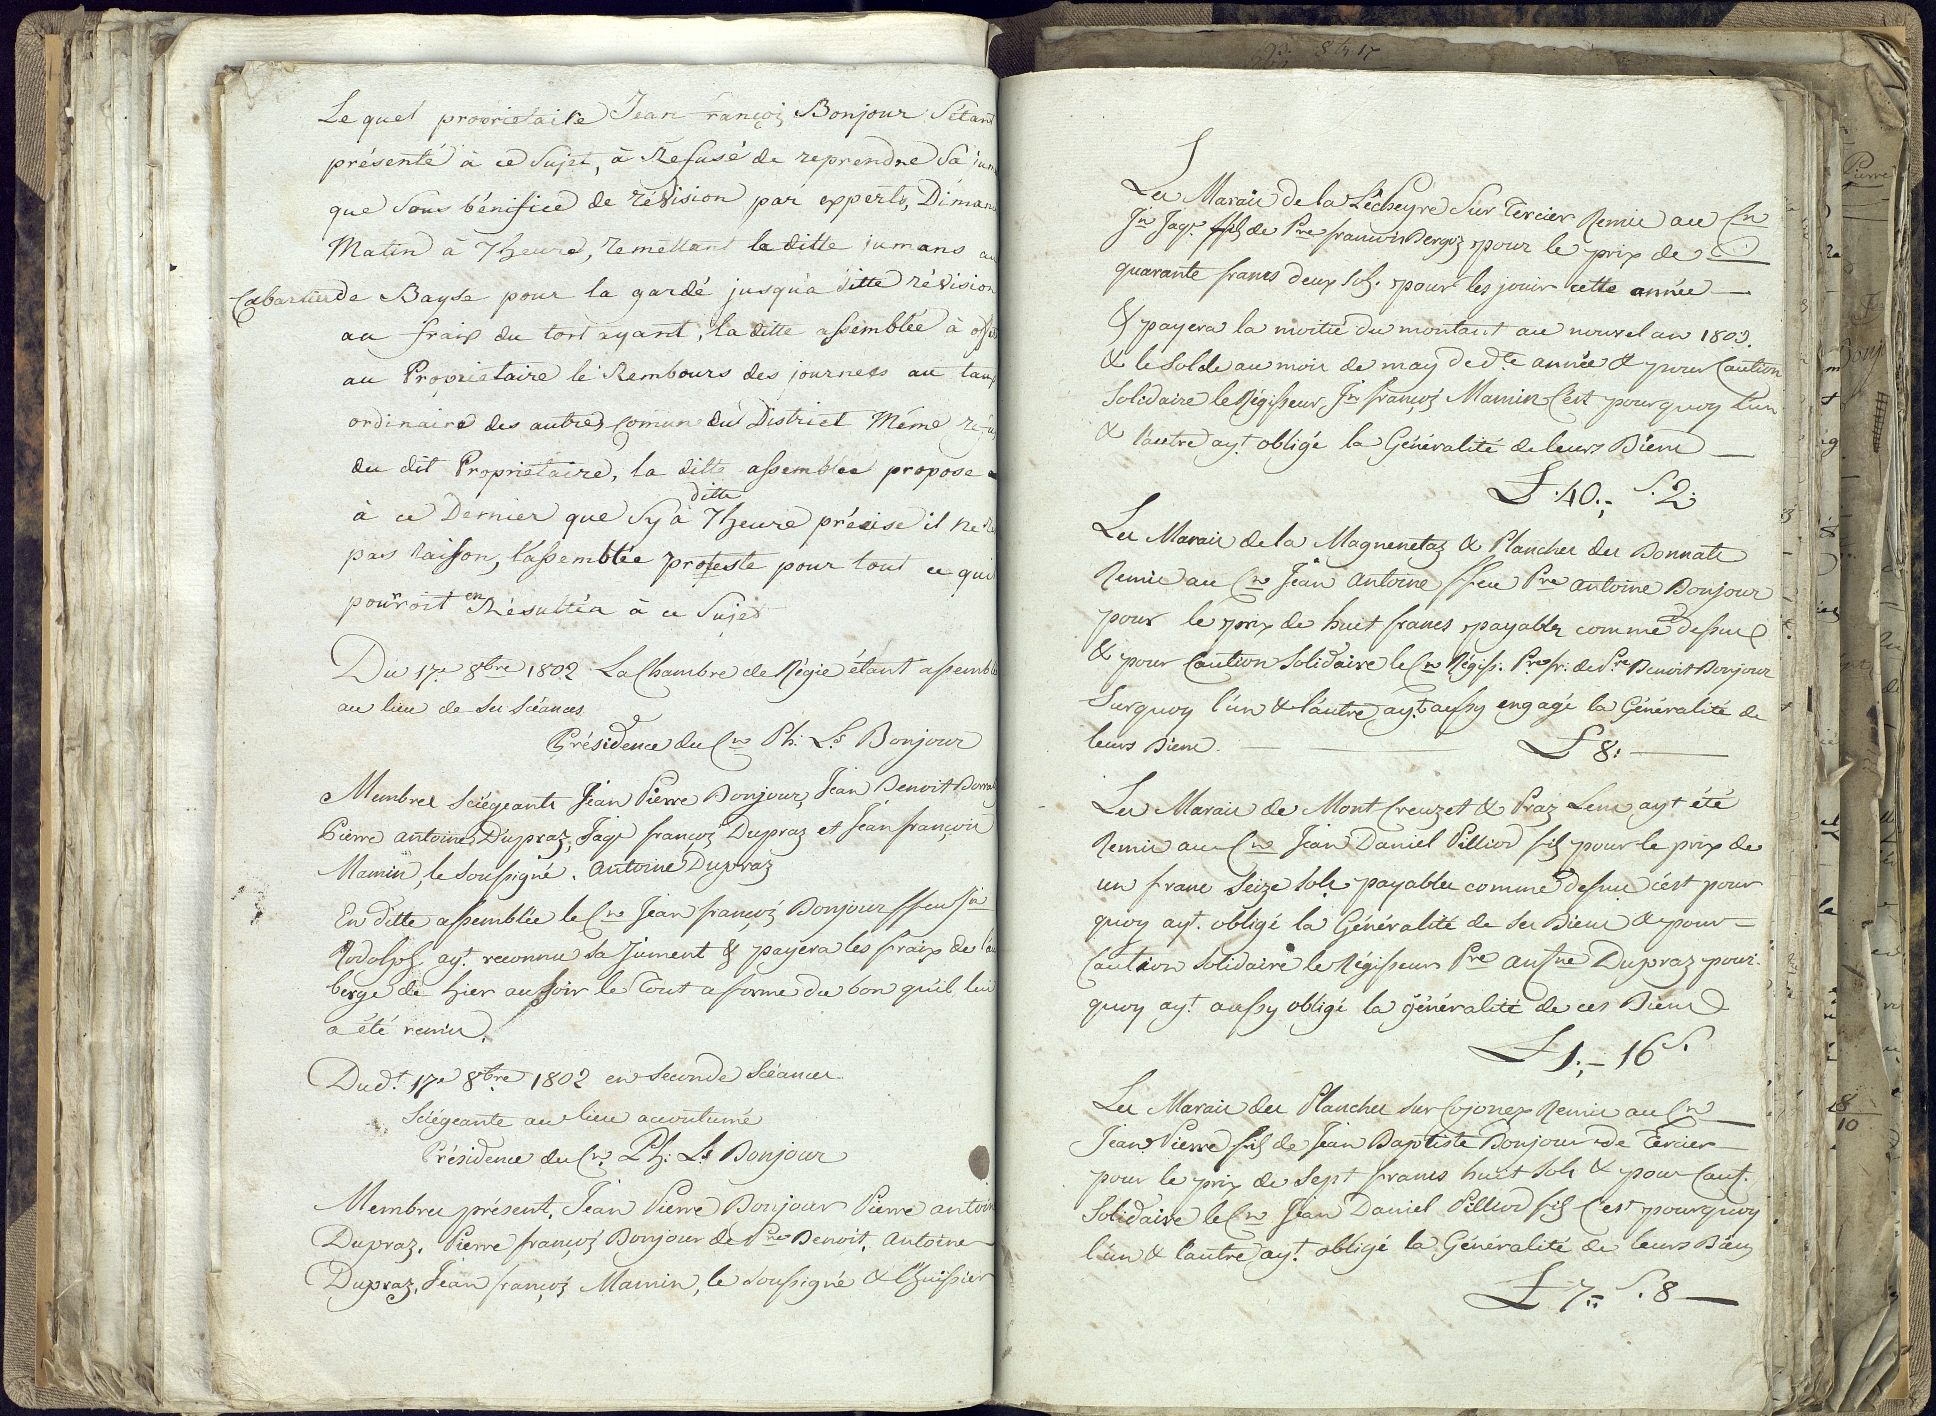 Le quel propriétaire Jean françois Bonjour s'étant
présenté à ce Sujet, à Refusé de reprendre Sa
que sous bénifice de révision par experts, Diman
Matin à 7 heure, remettant la ditte jumans au
Cabartier de Bayse pour la gardé jusqu'a ditte révision
au fraix du tort ayant, la ditte assemblée à
au Proprietaire le Rembours des journees au taux
ordinaire des autres comune du District Même
du dit Proprietaire, la ditte assemblée propose
à ce Dernier que Sy à ditte 7 heure précise il ne
pas raison, l'assemblée proteste pour tout ce qui
pouroit en Résultéa à ce Sujet
Du 17e 8bre 1802 La Chambre de Régie étant assemblé
au lieu de ses Séances
Présidence du Cn Ph: Ls Bonjour
Membres Sciégeants Jean Pierre Bonjour, Jean Benoit
Pierre antoine Dupraz, Jaqs françois Dupraz et Jean françois
Mamin, le soussigné. Antoine Dupraz
En ditte assemblée le Cn Jean françois Bonjour ffeu Jn
Rodolph ayt. reconnu sa Jument & payera les fraix de l'au
berge de hier au soir le Tout a forme du bon qu'il lui
a été remis.
Dud.t 17e 8bre 1802 en seconde Scéances
Sciégeante au lieu acoutumé
Présidence du Cn. Ph: Ls Bonjour
Membres présent, Jean Pierre Bonjour Pierre antoin
Dupraz, Pierre françois Bonjour de Pre Benoit, Antoine
Dupraz, Jean françois Mamin, le soussigné & l'huissier
Les Marais de la Lécheyre Sur Tercier Remis au Cn
Jn Jaqs ffils de Pre francois Bergoz pour le prix de
quarante francs deux sols. pour les jouir cette année
& payera la moitié du montant au nouvel an 1803.
& le solde au mois de may de dte année & pour Caution
Solidaire le Régisseur Jn françois Mamin C'est pourquoy l'un
& l'autre ayt obligé la Généralité de leurs Biens
£ 40.- S. 2.
Les Marais de la Magnenetaz & Planches des Bonnats
Remis au Cn Jean Antoine ffeu Pre antoine Bonjour
pour le prix de huit francs payables comme dessus
& pour Caution Solidaire le Cn Régiss. Pre fr: de Pre Benoit Bonjour
Surquoy l'un & l'autre ayt aussy engagé la Généralité de
leurs Biens. £ 8:
Les Marais de Mont Creuzet & Praz Lens ayt été
Remis au Cn Jean Daniel Pilliod fils pour le prix de
un franc Seize sols payables comme dessus c'est pour
quoy ayt. obligé la Généralité de ses Biens & pour
Caution Solidaire le Régisseur Pre antne Dupraz pour
quoy ayt aussy obligé la généralité de ces Biens
£ 1.- 16 S.
Les Marais des Planches sur Cojonex Remis au Cn
Jean Pierre fils de Jean Baptiste Bonjour de Tercier
pour le prix de Sept francs huit sols & pour Caut.
Solidaire le Cn Jean Daniel Pilliod fils C'est pourquoy
l'un & l'autre ayt. obligé la Généralité de leurs Biens
£ 7.- S. 8